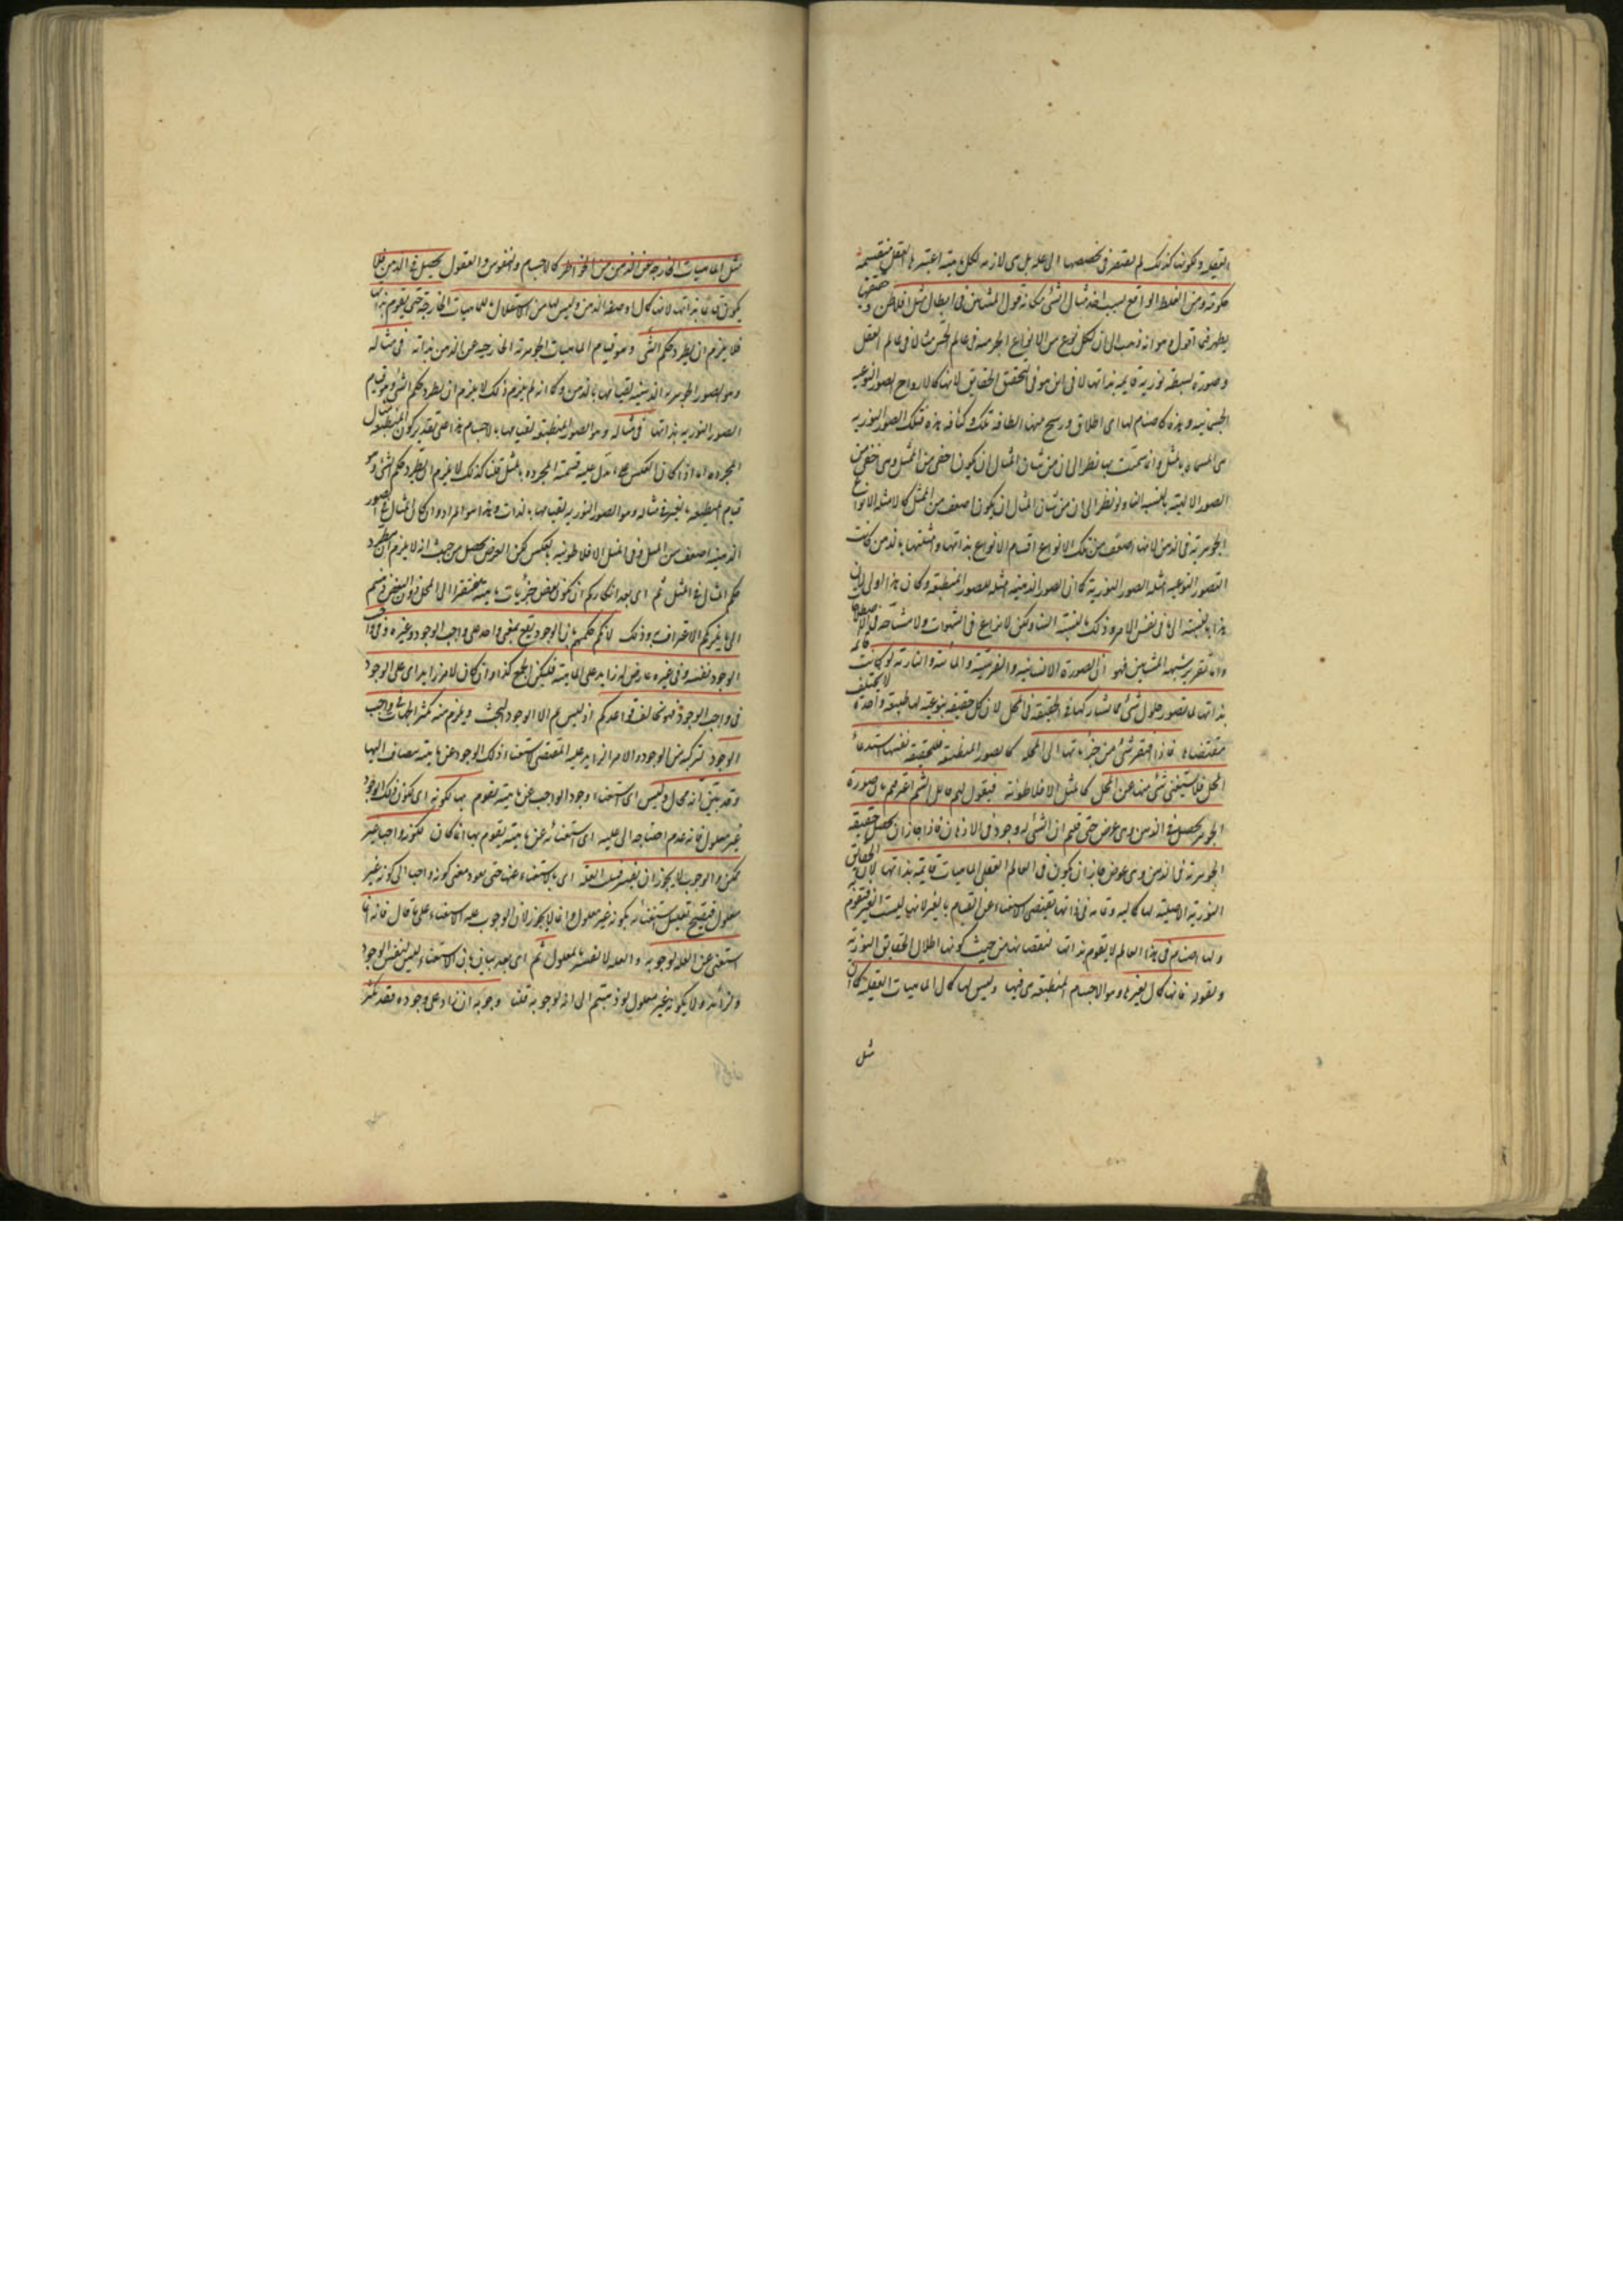 العقلية ولكونها كذلك لم يفتقر في تخصصها الى علة بل هي لازمة لكل ماهية اعتبرها العقل منقسمة
حكومة ومن الغلط الواقع بسبب اخذ مثال الشيء مكانه قول المشائين في ابطال مثل افلاطن وحقيقتها
يظهر فيما اقول وهو انه ذهب الى ان لكل نوع من الانواع الجرمية في عالم الحس مثالا في عالم العقل
وصورة بسيطة نورية قايمة بذاتها لا في اين هو في التحقيق الحقايق لانها كالارواح للصور النوعية
الجسمانية وهذه كاصنام لها اى اظلال ورشح منها للطافة تلك وكثافة هذه فتلك الصور النورية
هي المسماة بالمثل وانما سميت بها نظرا الى ان من شان المثال ان يكون اخفى من الممثل وهي اخفى من
الصور الالية بالنسبة الينا ولو نظر الى ان من شان المثال ان يكون اضعف من الممثل كالامثلة الانواع
الجوهرية في الذهن لانها اضعف من تلك الانواع لقيام الانواع بذاتها ومثلها بالذهن كانت
الصور النوعية امثلة الصور النورية كما ان الصور الذهنية امثلة للصور المنطبعة وكان هذا اولى لان
هذا بالنسبة الى ما في نفس الامر وذلك بالنسبة الينا ولكن لا نزاع في الشهوات ولا مشاحة في الاصطلاحات
واما تقرير شبهة المشائين فهو ان الصورة الانسانية والفرسية والمائية والنارية لو كانت قائمة
بذاتها لما تصور حلول شيء مما يشاركها في الحقيقة في المحل لان كل حقيقة نوعية لها طبيعة واحدة لا يختلف
مقتضاها فاذا افتقر شيء من جزئياتها الى المحل كالصور المنطبعة فللحقيقة نفسها استدعاء
المحل فلا يستغنى شيء منها عن المحل كالمثل الافلاطونية فيقول لهم قايل الستم اعترفتم بان صورة
الجوهر تحصل في الذهن وهي عرض حتى قلتم ان الشيء له وجود في الاذهان فاذا جاز ان تحصل حقيقة
الجوهرية في الذهن وهي عرض جاز ان يكون في العالم العقلى الماهيات قايمة بذاتها لان الحقائق
النورية الاصلية لها كمالية وتمامية في ذاتها تقتضى الاستغناء عن القيام بالغير لانها ليست لغير فتقوم
ولها اصنام في هذا العالم لا يقوم بذاتها لنقصانها من حيث كونها اظلال الحقائق النورية
ولقوله فانها كمال لغيرها وهو الاجسام المنطبعة هي فيها وليس لها كمال الماهيات العقلية كما ان
مثل
مثل الماهيات الخارجة عن الذهن من الجواهر كالاجسام والنفوس والعقول تحصل في الذهن فلا
يكون قايمة بذاتها لانها كمال او صفة للذهن وليس لها من الاستقلال ما للماهيات الخارجة حتى يقوم بذاتها
فلا يلزم ان يطرد حكم الشيء وهو قيام الماهيات الجوهرية الخارجية عن الذهن بذاته في مثاله
وهو الصور الجوهرية الذهنية لقيامها بالذهن وكما انه لم يلزم ذلك لا يلزم ان يطرد حكم الشيء وهو قيام
الصور النورية بذاتها في مثاله وهو الصور المنطبعة لقيامها بالاجسام هذا على تقدير كون المنطبعة مثال
المجردة اما اذا كان بالعكس مما تدل عليه تسمية المجردة بالمثل قلنا كذلك لا يلزم ان يطرد حكم الشيء وهو
قيام المنطبعة بالغير في مثاله وهو الصور النورية لقيامها بالذات وهذا هو المراد وان كان المثال في الصور
الذهنية اضعف من الممثل وفي المثل الافلاطونية بالعكس لكن الغرض يحصل من حيث انه لا يلزم ان يطرد
حكم المثال في الممثل ثم اى بعد انكاركم ان يكون بعض جزئيات ماهية مفتقرا الى المحل دون البعض رجعتم
الى ما يلزمكم الاعتراف به وذلك لانكم حكمتم بان الوجود يقع بمعنى واحد على واجب الوجود وغيره وفي واجب
الوجود نفسه وفي غيره عارض له زايد على الماهية فليكن الجميع كذا وان كان لامر زايد اى على الوجود
في واجب الوجود فهو يخالف قواعدكم اذ ليس ثم الا الوجود البحت ويلزم منه تكثر الجهات في واجب
الوجود لتركبه من الوجود والامر الزايد عليه المقتضى لاستغناء ذلك الوجود عن ماهية يضاف اليها
وقد تبين انه محال وليس اى استغناء وجود الواجب عن ماهية تقوم بها لكونه اى لكون ذلك الوجود
غير معلول فان عدم احتياجه الى علية اى استغنائه عن ماهية يقوم بها انما كان لكونه واجبا غير
ممكن والوجوب لا يجوز ان يفسر بسلب العلة اى بالاستغناء عنها حتى يعود معنى كونه واجبا الى كونه غير
معلول فيصح تعليل استغنائه بكونه غير معلول وانما لا يجوز لان الوجوب علة الاستغناء على ما قال فانه انما
استغنى عن العلة لوجوبه والعلة لا تفسر بالمعلول ثم اى بعد بيان ان الاستغناء ليس لنفس الوجود
ولزائد ولا لكونه غير معلول لو ذهبتم الى انه لوجوبه قلنا وجوبه ان زاد على وجوده فقد تكثر